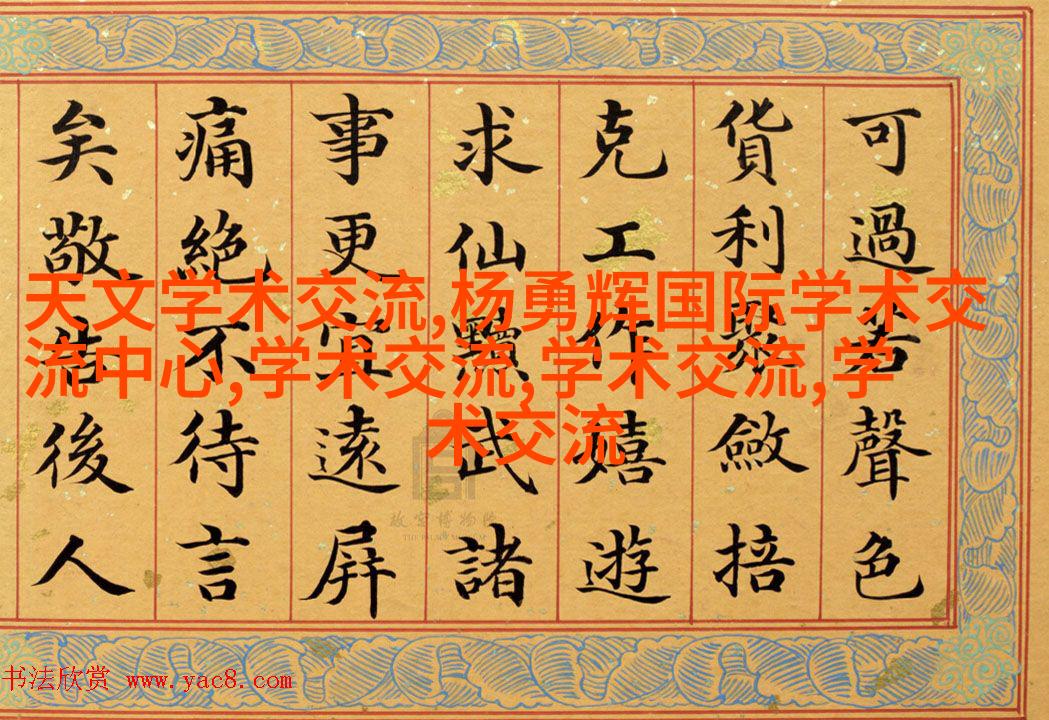 可過若聲色
貨利聚斂掊
克工作嬉遊
求仙黷武諸
事更宜遠屏
痛絕不待言
矣敬告後人
天文学术交流,杨勇辉国际学术交
流中心,学术交流,学术交流,学
术交流
故宫博物院
书法欣赏 www.yac8.com